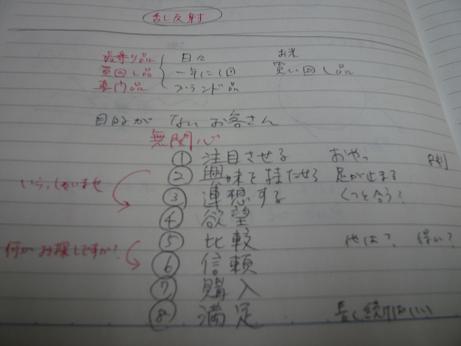 最寄り品 日々 お米
買回し品 一年に1回 買い回し品
専門品 ブランド品
目的がないお客さん
無関心
① 注目させる おやっ
いらっしゃいませ ② 興味を持たせる 足が止まる
③ 連想する
④ 欲望
何かお探しですか? ⑤ 比較 他は?
⑥ 信頼
⑦ 購入
⑧ 満足